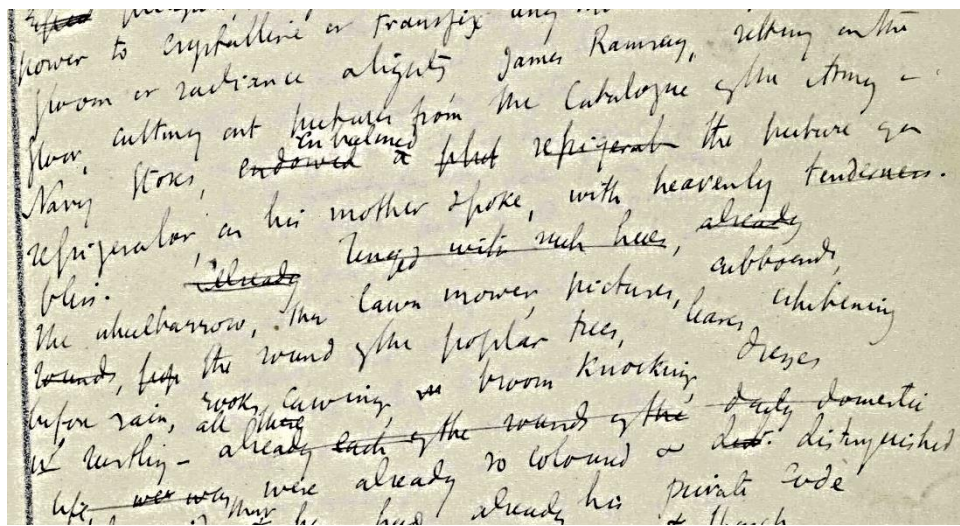 power to crystallise or transfix any
gloom or radiance alights, James Ramsay, sitting on the
floor, cutting out pictures from the Catalogue of the Army &
Navy Stores, endowed embalmed a refrigerat the picture of a
refrigerator, as his mother spoke, with heavenly tenderness.
bliss. already tinged with such hues, already
The wheelbarrow, the lawn mower, pictures, cupboards,
sounds, the sound of the poplar trees, leaves whitening
before rain, rooks cawing, broom knocking, dresses
rustling - all these already each of the sounds of the daily domestic
life, were already so coloured & distinguished
that he had already his private code